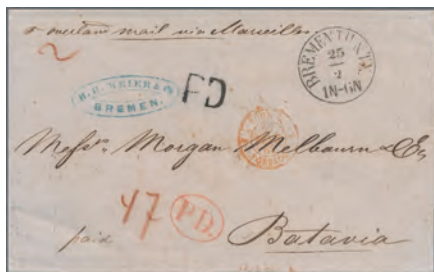 overland mail via Marseilles
BREMEN TH. & TX.
25
2
1N-6N
H.H. MEIER & Co
BREMEN.
PD
Messrs. Morgan Melbourn & Co
47
P.D.
paid
Batavia